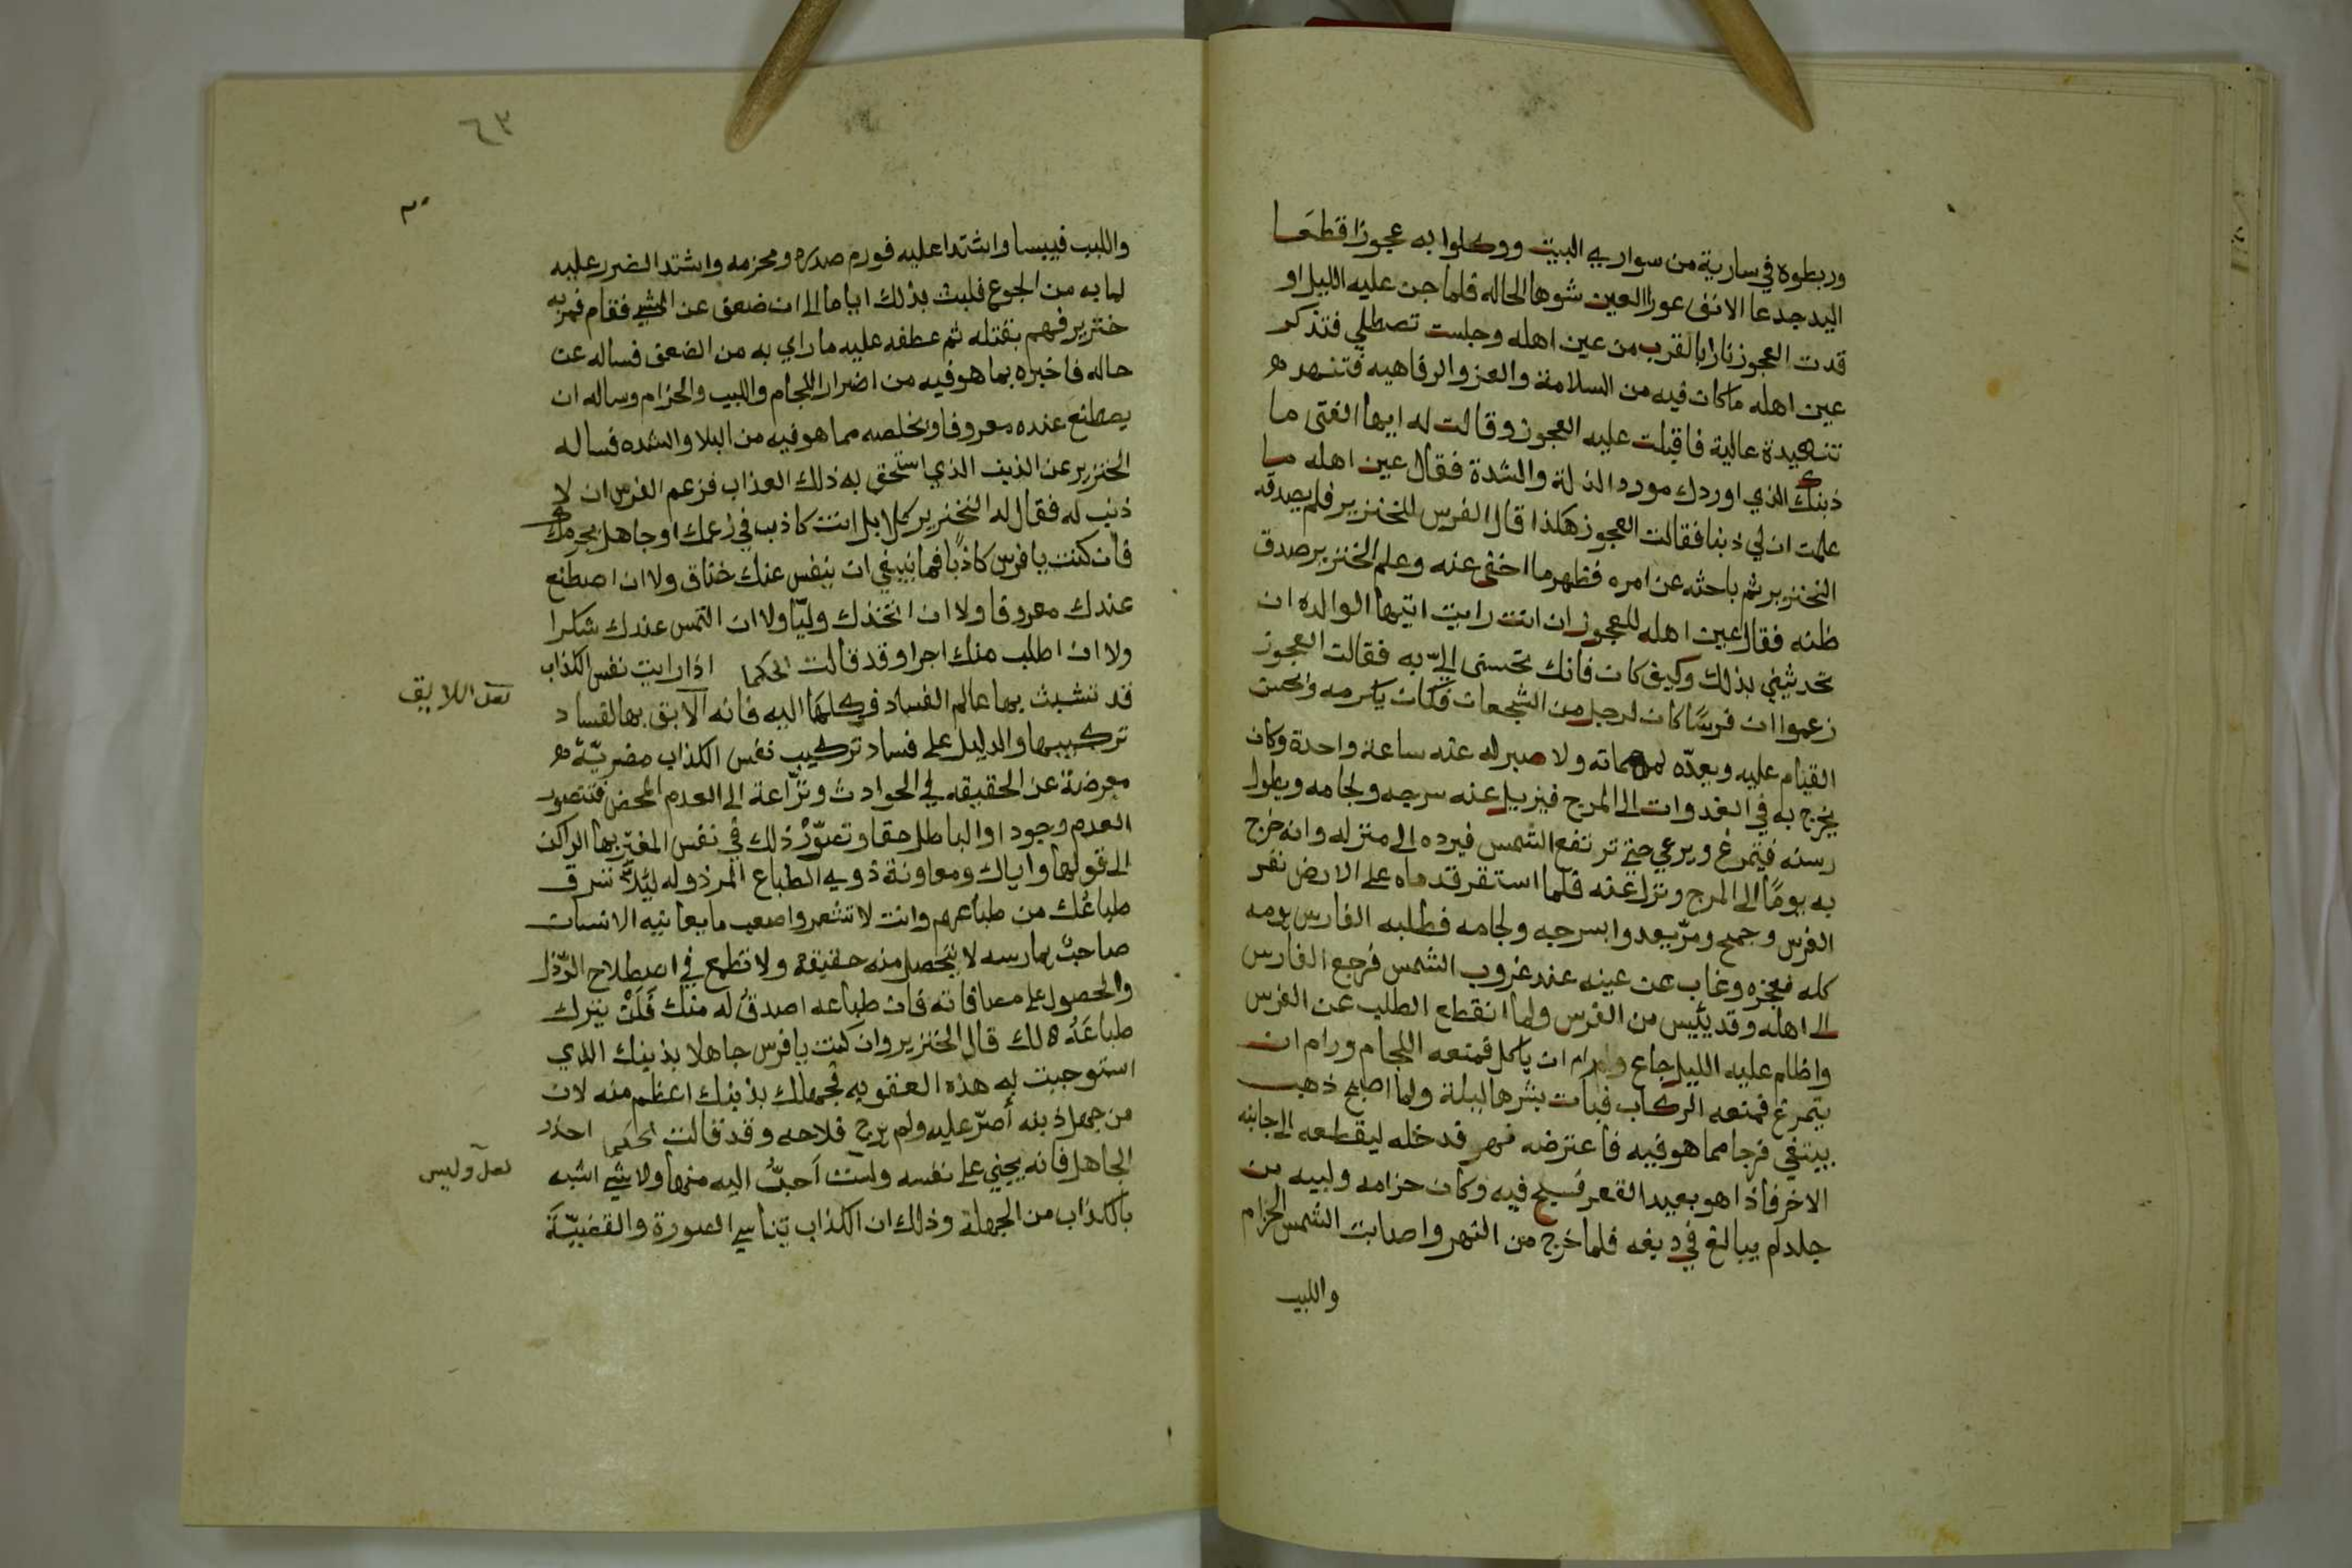 وربطوه في سارية من سواري البيت ووكلوا به عجوزا قطعا
اليد جدعا الانف عورا العين شوها الحاله فلما جن عليه الليل او
قدت العجوز نارا بالقرب من عين اهله وجلست تصطلي فتذكر
عين اهله ماكان فيه من السلامة والعز والرفاهيه فتنهد
تنهيدة عالية فاقبلت عليه العجوز وقالت له ايها الفتى ما
ذنبك الذي اوردك مورد الذلة والشدة فقال عين اهله ما
علمت ان لي ذنبا فقالت العجوز هكذا قال الفرس للخنزير فلم يصدقه
الخنزير ثم باحثه عن امره فظهر ما اخفى عنه وعلم الخنزير صدق
ظنه فقال عين اهله للعجوز ان انت رايت ايتها الوالده ان
تحدثيني بذلك وكيف كان فانك تحسني اليّ به فقالت العجوز
زعموا ان فرسًا كان لرجل من الشجعان فكان يكرمه ويحسن
القيام عليه ويعدّه لمهماته ولا صبر له عنه ساعة واحدة وكان
يخرج به في الغدوات الى المرج فيزيل عنه سرجه ولجامه ويطول
رسنه فيتمرغ ويرعي حتي ترتفع الشمس فيرده الى منزله وانه خرج
به يومًا الى المرج ونزل عنه فلما استقر قدماه على الارض نفر
الفرس وجمح ومرّ يعدوا بسرجه ولجامه فطلبه الفارس يومه
كله فعجزه وغاب عن عينه عند غروب الشمس فرجع الفارس
الى اهله وقد يئيس من الفرس ولما انقطع الطلب عن الفرس
واظلم عليه الليل جاع ورام ان ياكل فمنعه اللجام ورام ان
يتمرغ فمنعه الركاب فبات بشرها ليلة ولما اصبح ذهب
يبتغي فرجا مما هو فيه فاعترضه نهر فدخله ليقطعه الى جانبه
الاخر فاذا هو بعيد القعر فسبح فيه وكان حزامه ولببه من
جلد لم يبالغ في دبغه فلما خرج من النهر واصابت الشمس الحزام
واللبب
٦٣
واللبب فيبسا واشتدا عليه فورم صدره ومحزمه واشتد الضرر عليه
لما به من الجوع فلبث بذلك اياما الى ان ضعف عن المشي فقام فمر به
خنزير فهم بقتله ثم عطفه عليه ما راي به من الضعف فساله عن
حاله فاخبره بما هو فيه من اضرار اللجام واللبب والحزام وساله ان
يصطنع عنده معروفا ويخلصه مما هو فيه من البلا والشده فساله
الخنزير عن الذنب الذي استحق به ذلك العذاب فزعم الفرس ان لا
ذنب له فقال له الخنزير كلا بل انت كاذب في زعمك او جاهل بجرمك
فان كنت يا فرس كاذبًا فما ينبغي ان ينفس عنك خناق ولا ان اصطنع
عندك معروفا ولا ان اتخذك وليّا ولا ان التمس عندك شكرا
ولا ان اطلب منك اجرا وقد قالت الحكما اذا رايت نفس الكذاب
قد تشبث بها عالم الفساد فكلها اليه فانه الابق بها لفساد
لعله اللايق
تركيبها والدليل على فساد تركيب نفس الكذاب مضربّة
معرضة عن الحقيقه في الحوادث ونزّاعة الى العدم المحض فتتصور
العدم وجودا والباطل حقا وتصوّر ذلك في نفس المغترّ بها الراكن
الى قولها واياك ومعاونة ذوي الطباع المرذوله ليلّا تسرق
طباعُك من طباعهم وانت لا تشعر واصعب ما يعانيه الانسان
صاحبٌ يمارسه لا يتحصل منه حقيقة ولا تطمع في اصطلاح الرّذل
والحصول على مصافاته فان طباعه اصدق له منك فَلَنْ يترك
طباعَهُ لك قال الخنزير وان كنت يا فرس جاهلا بذنبك الذي
استوجبت به هذه العقوبه فجهلك بذنبك اعظم منه لان
من جهل ذنبه أصرّ عليه ولم يرج فلاحه وقد قالت الحكما احذر
الجاهل فانه يجني على نفسه ولست أحبّ اليه منها ولا شي اشبه
لعله وليس
بالكذاب من الجهلة وذلك ان الكذاب يتناسي الصورة والقضيّة